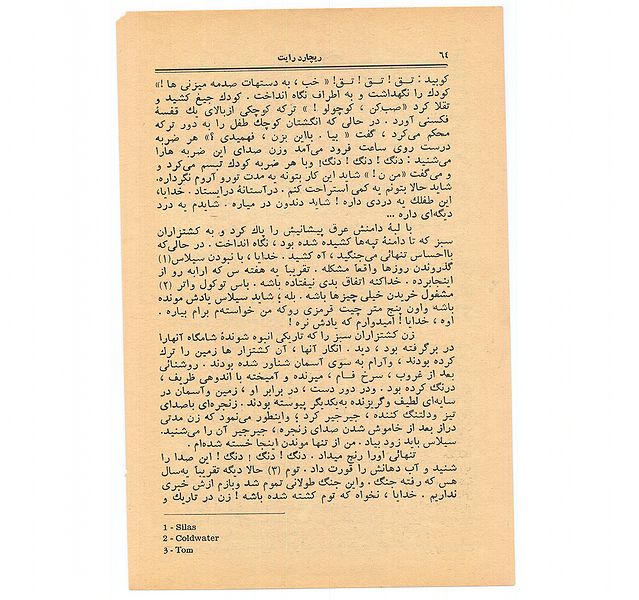 ٦٤
ریچارد رایت
کوبید : تـق ! تـق ! تـق! « خب ، به دستهات صدمه میزنی ها !»
کودك را نگهداشت و به اطراف نگاه انداخت . کودك جیغ کشید و
تقلا کرد «صب‌کن ، کوچولو ! » ترکه کوچکی ازبالای یك قفسهٔ
فکسنی آورد . در حالی که انگشتان کوچك طفل را به دور ترکه
محکم می‌کرد ، گفت « بیا . بااین بزن ، فهمیدی ؟» هر ضربه
درست روی ساعت فرود می‌آمد وزن صدای این ضربه هارا
می‌شنید : دنگ ! دنگ ! دنگ! وبا هر ضربه کودك تبسم می‌کرد و
و می‌گفت «من ن! » شاید این کار بتونه یه مدت تورو آروم نگرداره.
شاید حالا بتونم یه کمی استراحت کنم . درآستانهٔ درایستاد . خدایا،
این طفلك یه دردی داره ! شاید دندون در میاره . شایدم یه درد
دیگه‌ای داره ...
با لبهٔ دامنش عرق پیشانیش را پاك کرد و به کشتزاران
سبز که تا دامنهٔ تپه‌ها کشیده شده بود ، نگاه انداخت . در حالی‌که
بااحساس تنهائی می‌جنگید ، آه کشید . خدایا ، با نبودن سیلاس(۱)
گذروندن روزها واقعاً مشکله . تقریباً یه هفته س که ارابه رو از
اینجابرده . خداکنه اتفاق بدی نیفتاده باشه . باس توکول واتر (۲)
مشغول خریدن خیلی چیزها باشه . بله ؛ شاید سیلاس یادش مونده
باشه واون پنج متر چیت قرمزی روکه من خواسته‌م برام بیاره .
اوه ، خدایا ! امیدوارم که یادش نره !
زن کشتزاران سبز را که تاریکی انبوه شوندهٔ شامگاه آنهارا
در برگرفته بود ، دید . انگار آنها ، آن کشتزار ها زمین را ترك
کرده بودند ، وآرام به سوی آسمان شناور شده بودند . روشنائی
بعد از غروب ، سرخ فـام ، میرنده و آمیخته با اندوهی ظریف ،
درنگ کرده بود . ودر دور دست ، در برابر او ، زمین وآسمان در
سایه‌ای لطیف وگریزنده به‌یکدیگر پیوسته بودند . زنجره‌ای باصدای
تیز ودلتنگ کننده ، جیرجیر کرد ؛ واینطور می‌نمود که زن مدتی
دراز بعد از خاموش شدن صدای زنجره ، جیرجیر آن را می‌شنید.
سیلاس باید زود بیاد . من از تنها موندن اینجا خسته شده‌ام .
تنهائی اورا رنج میداد . دنگ ! دنگ ! دنگ ! این صدا را
شنید و آب دهانش را قورت داد . توم (۳) حالا دیگه تقریباً یه‌سال
هس که رفته جنگ . واین جنگ طولانی تموم شد وبازم ازش خبری
نداریم . خدایا ، نخواه که توم کشته شده باشه ! زن در تاریك و
1 - Silas
2 - Coldwater
3 - Tom